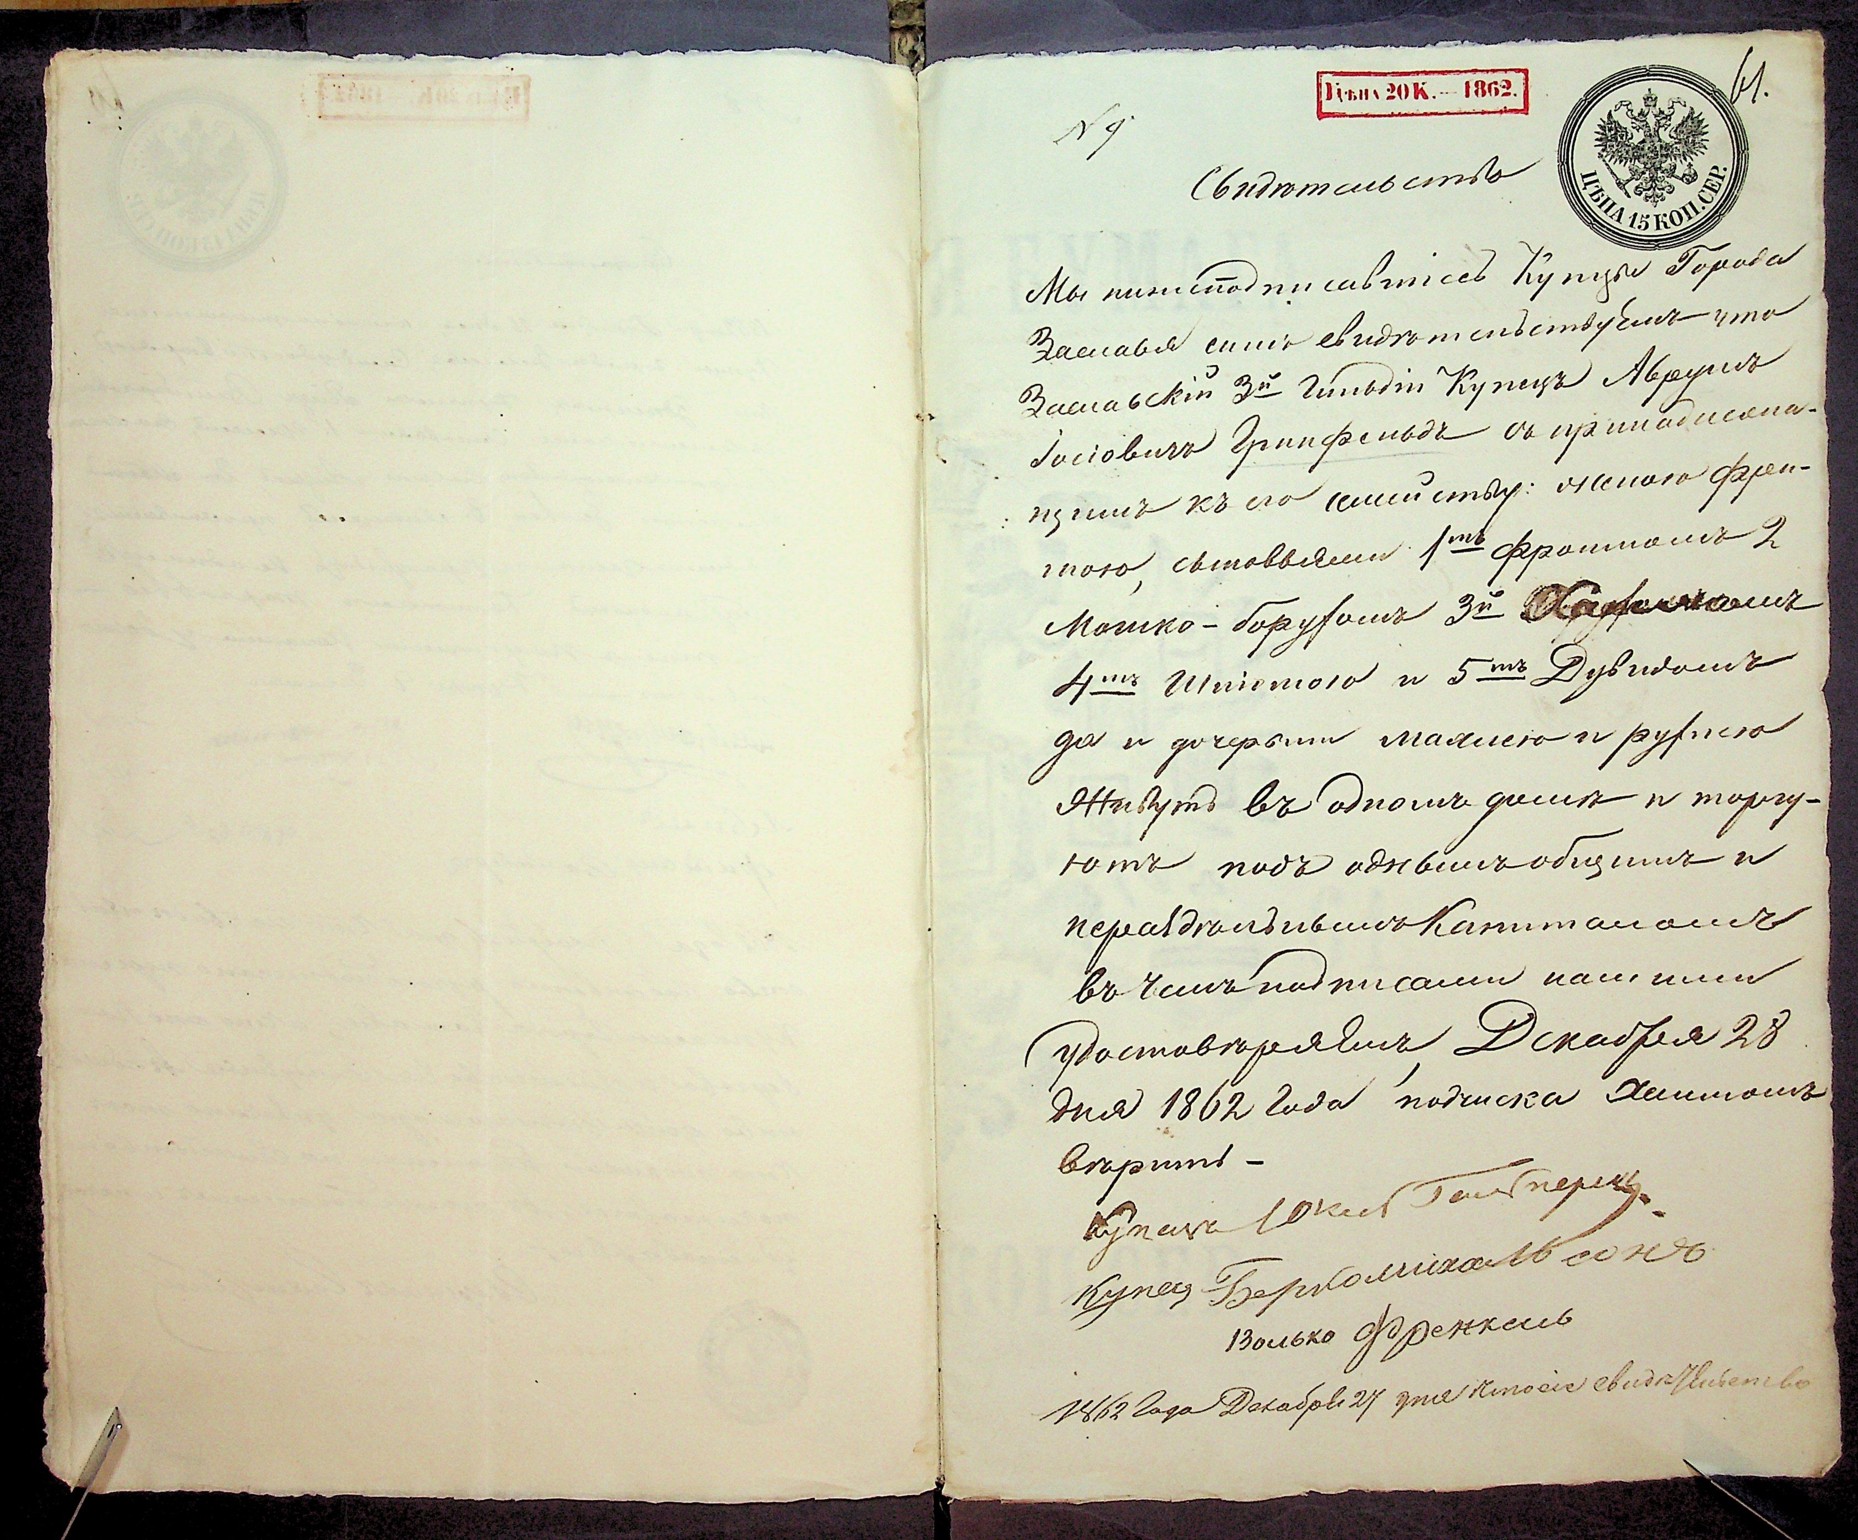 Цѣна 20 К. — 1862.
61.
N 9
ЦѢНА 15 КОП. СЕР.
Свидѣтельство
Мы нижеподписавшіесъ Купцы Города
Заславля симъ свидѣтельствуемъ что
Заславскій 3й Гильдіи Купецъ Аврумъ
Іосіовичъ Гринфельдъ съ принадлежа-
щимъ къ его семейству: женою Фрей-
мою, сыновьями 1мъ Фроимомъ 2
Мошко-борухомъ 3й
4мъ и 5мъ Дувидомъ
да и дочерьми и рухлею
Живутъ въ одномъ домѣ и торгу-
ютъ подъ однымъ общимъ и
нераздѣльнымъ Капиталомъ
въ чемъ подписами нашими
удостовѣряемъ, Декабря 28
дня 1862 Года, подчиска
вѣрить –
Купецъ
Купец Берко Михальсонъ
Волько Френкель
1862 Года Декабря 29 дня сіе свидѣтельство